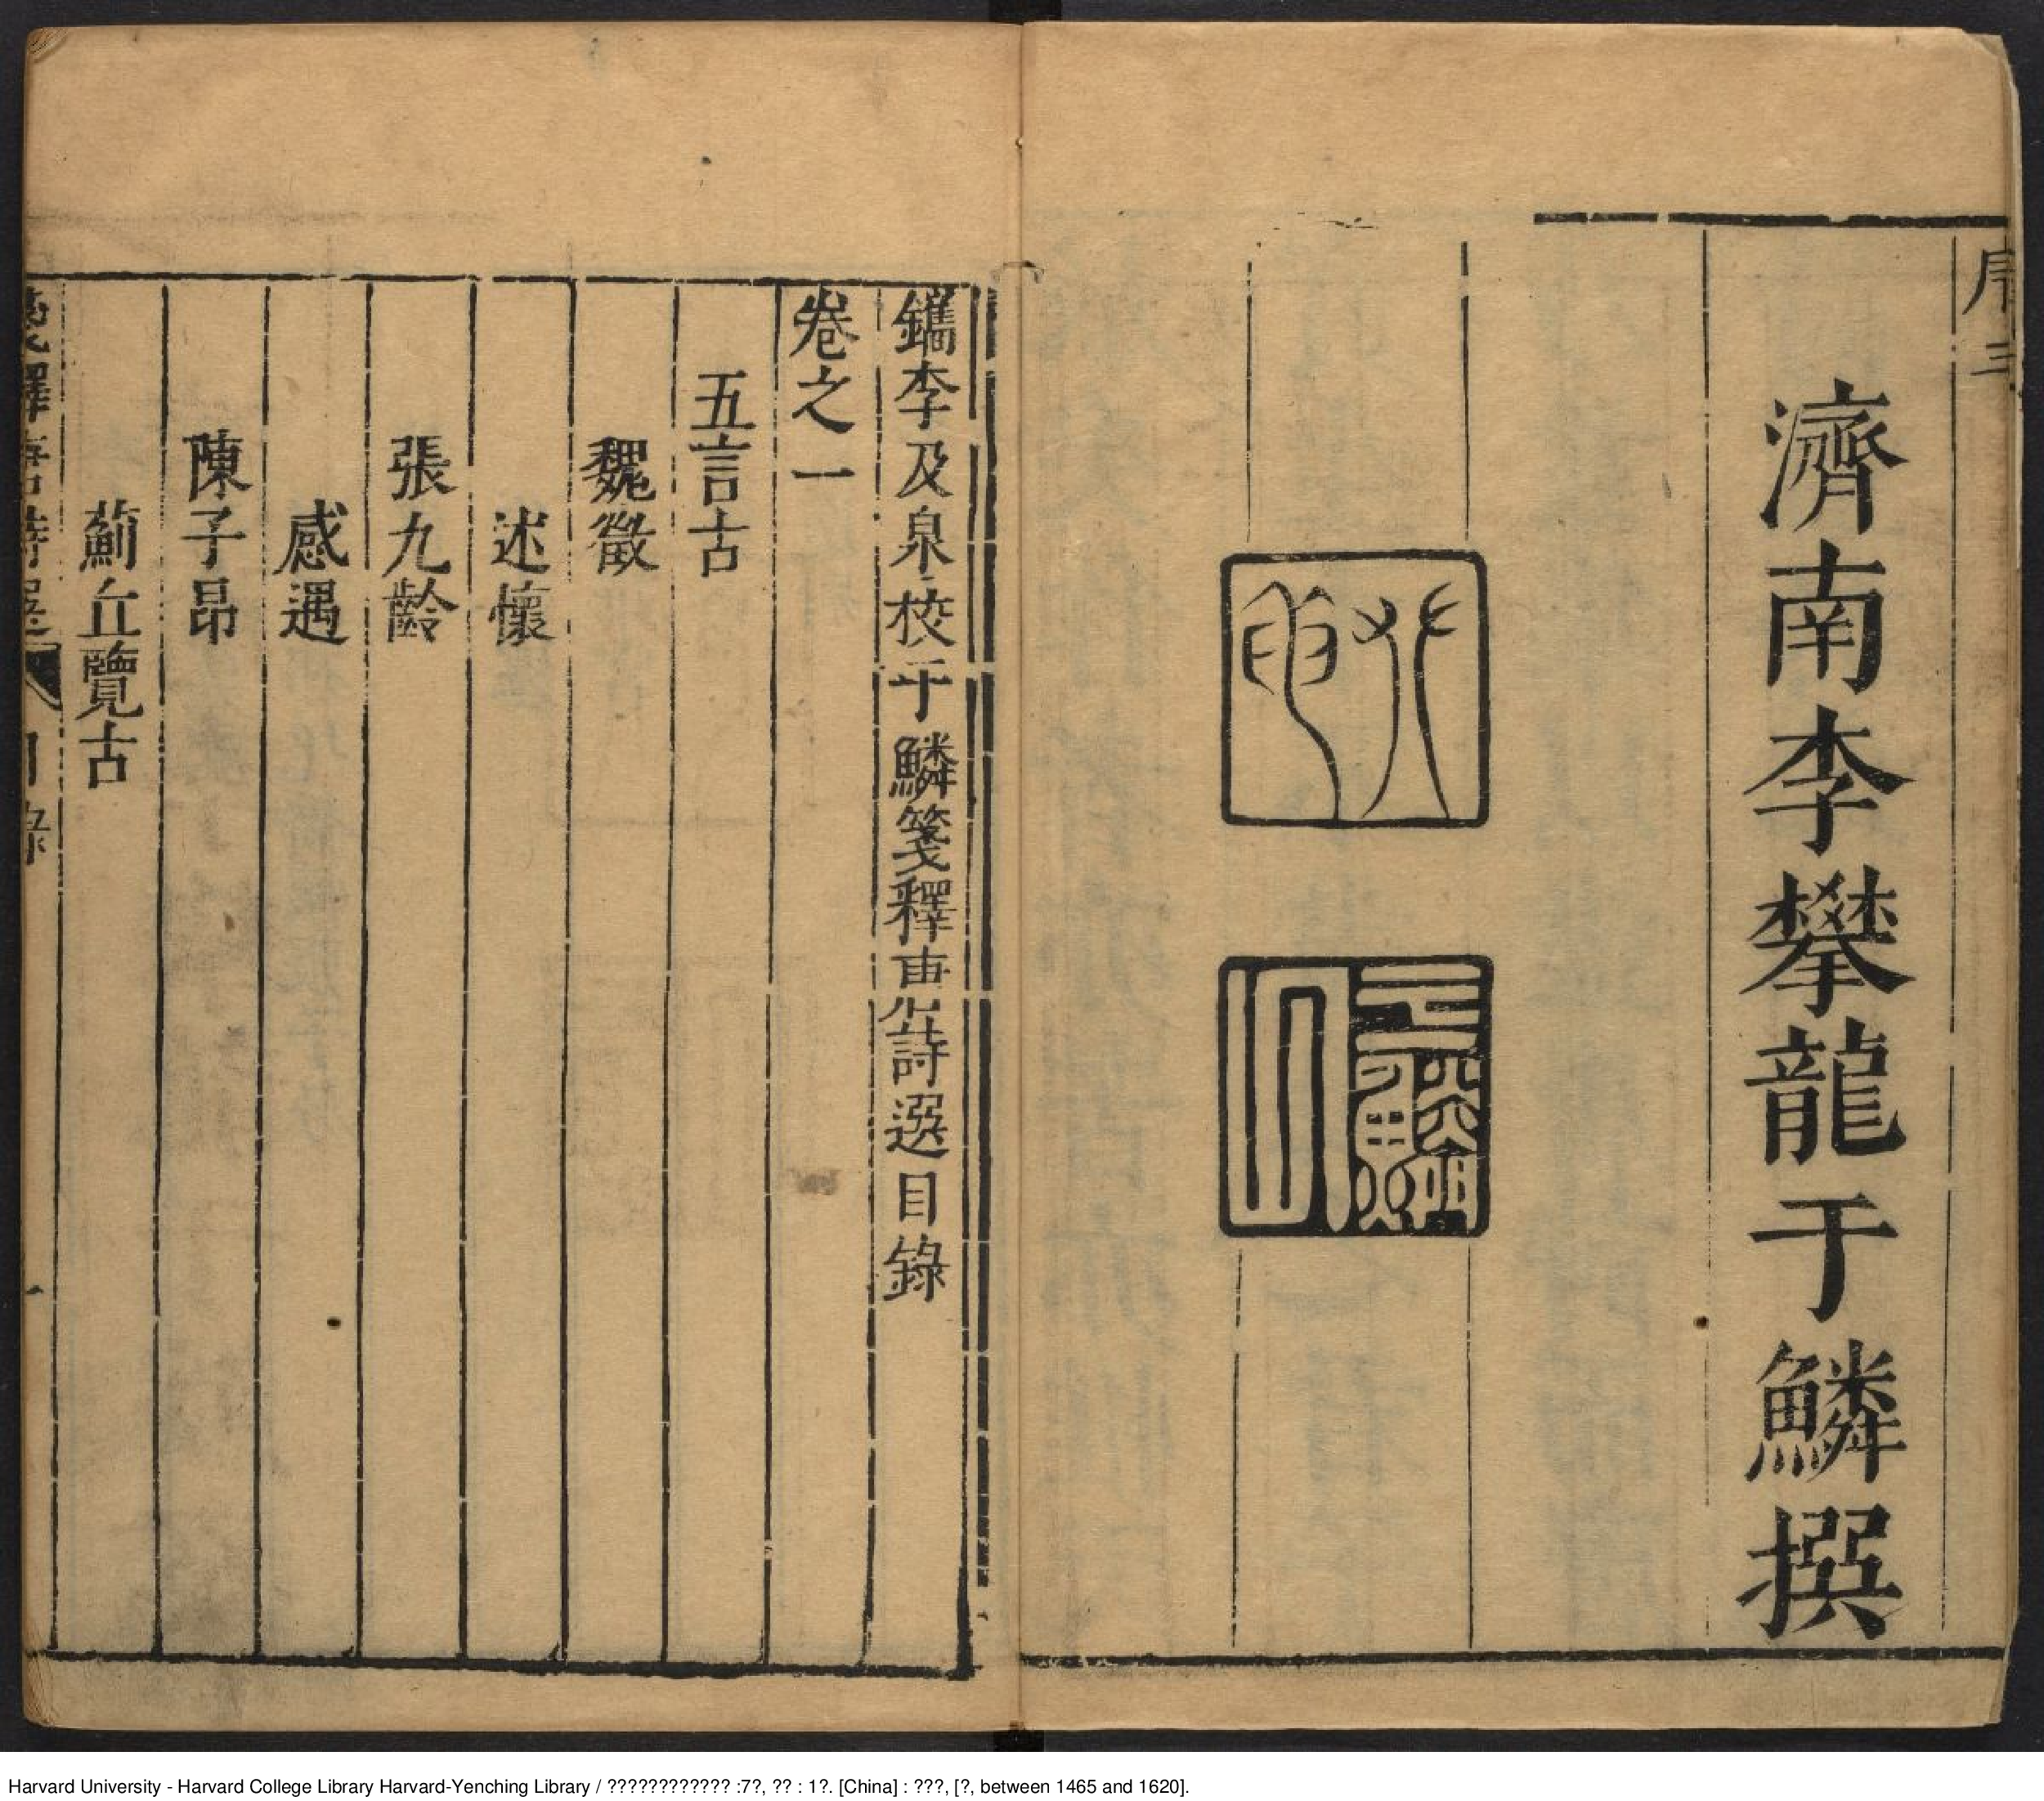 序三
濟南李攀龍于鱗撰
鐫李及泉校于鱗箋釋唐詩選目錄
卷之一
五言古
魏徵
述懷
張九齡
感遇
陳子昂
薊丘覽古
箋釋唐詩選 目錄 一
Harvard University - Harvard College Library Harvard-Yenching Library / ???????????? :7?, ?? : 1?. [China] : ???, [?, between 1465 and 1620].